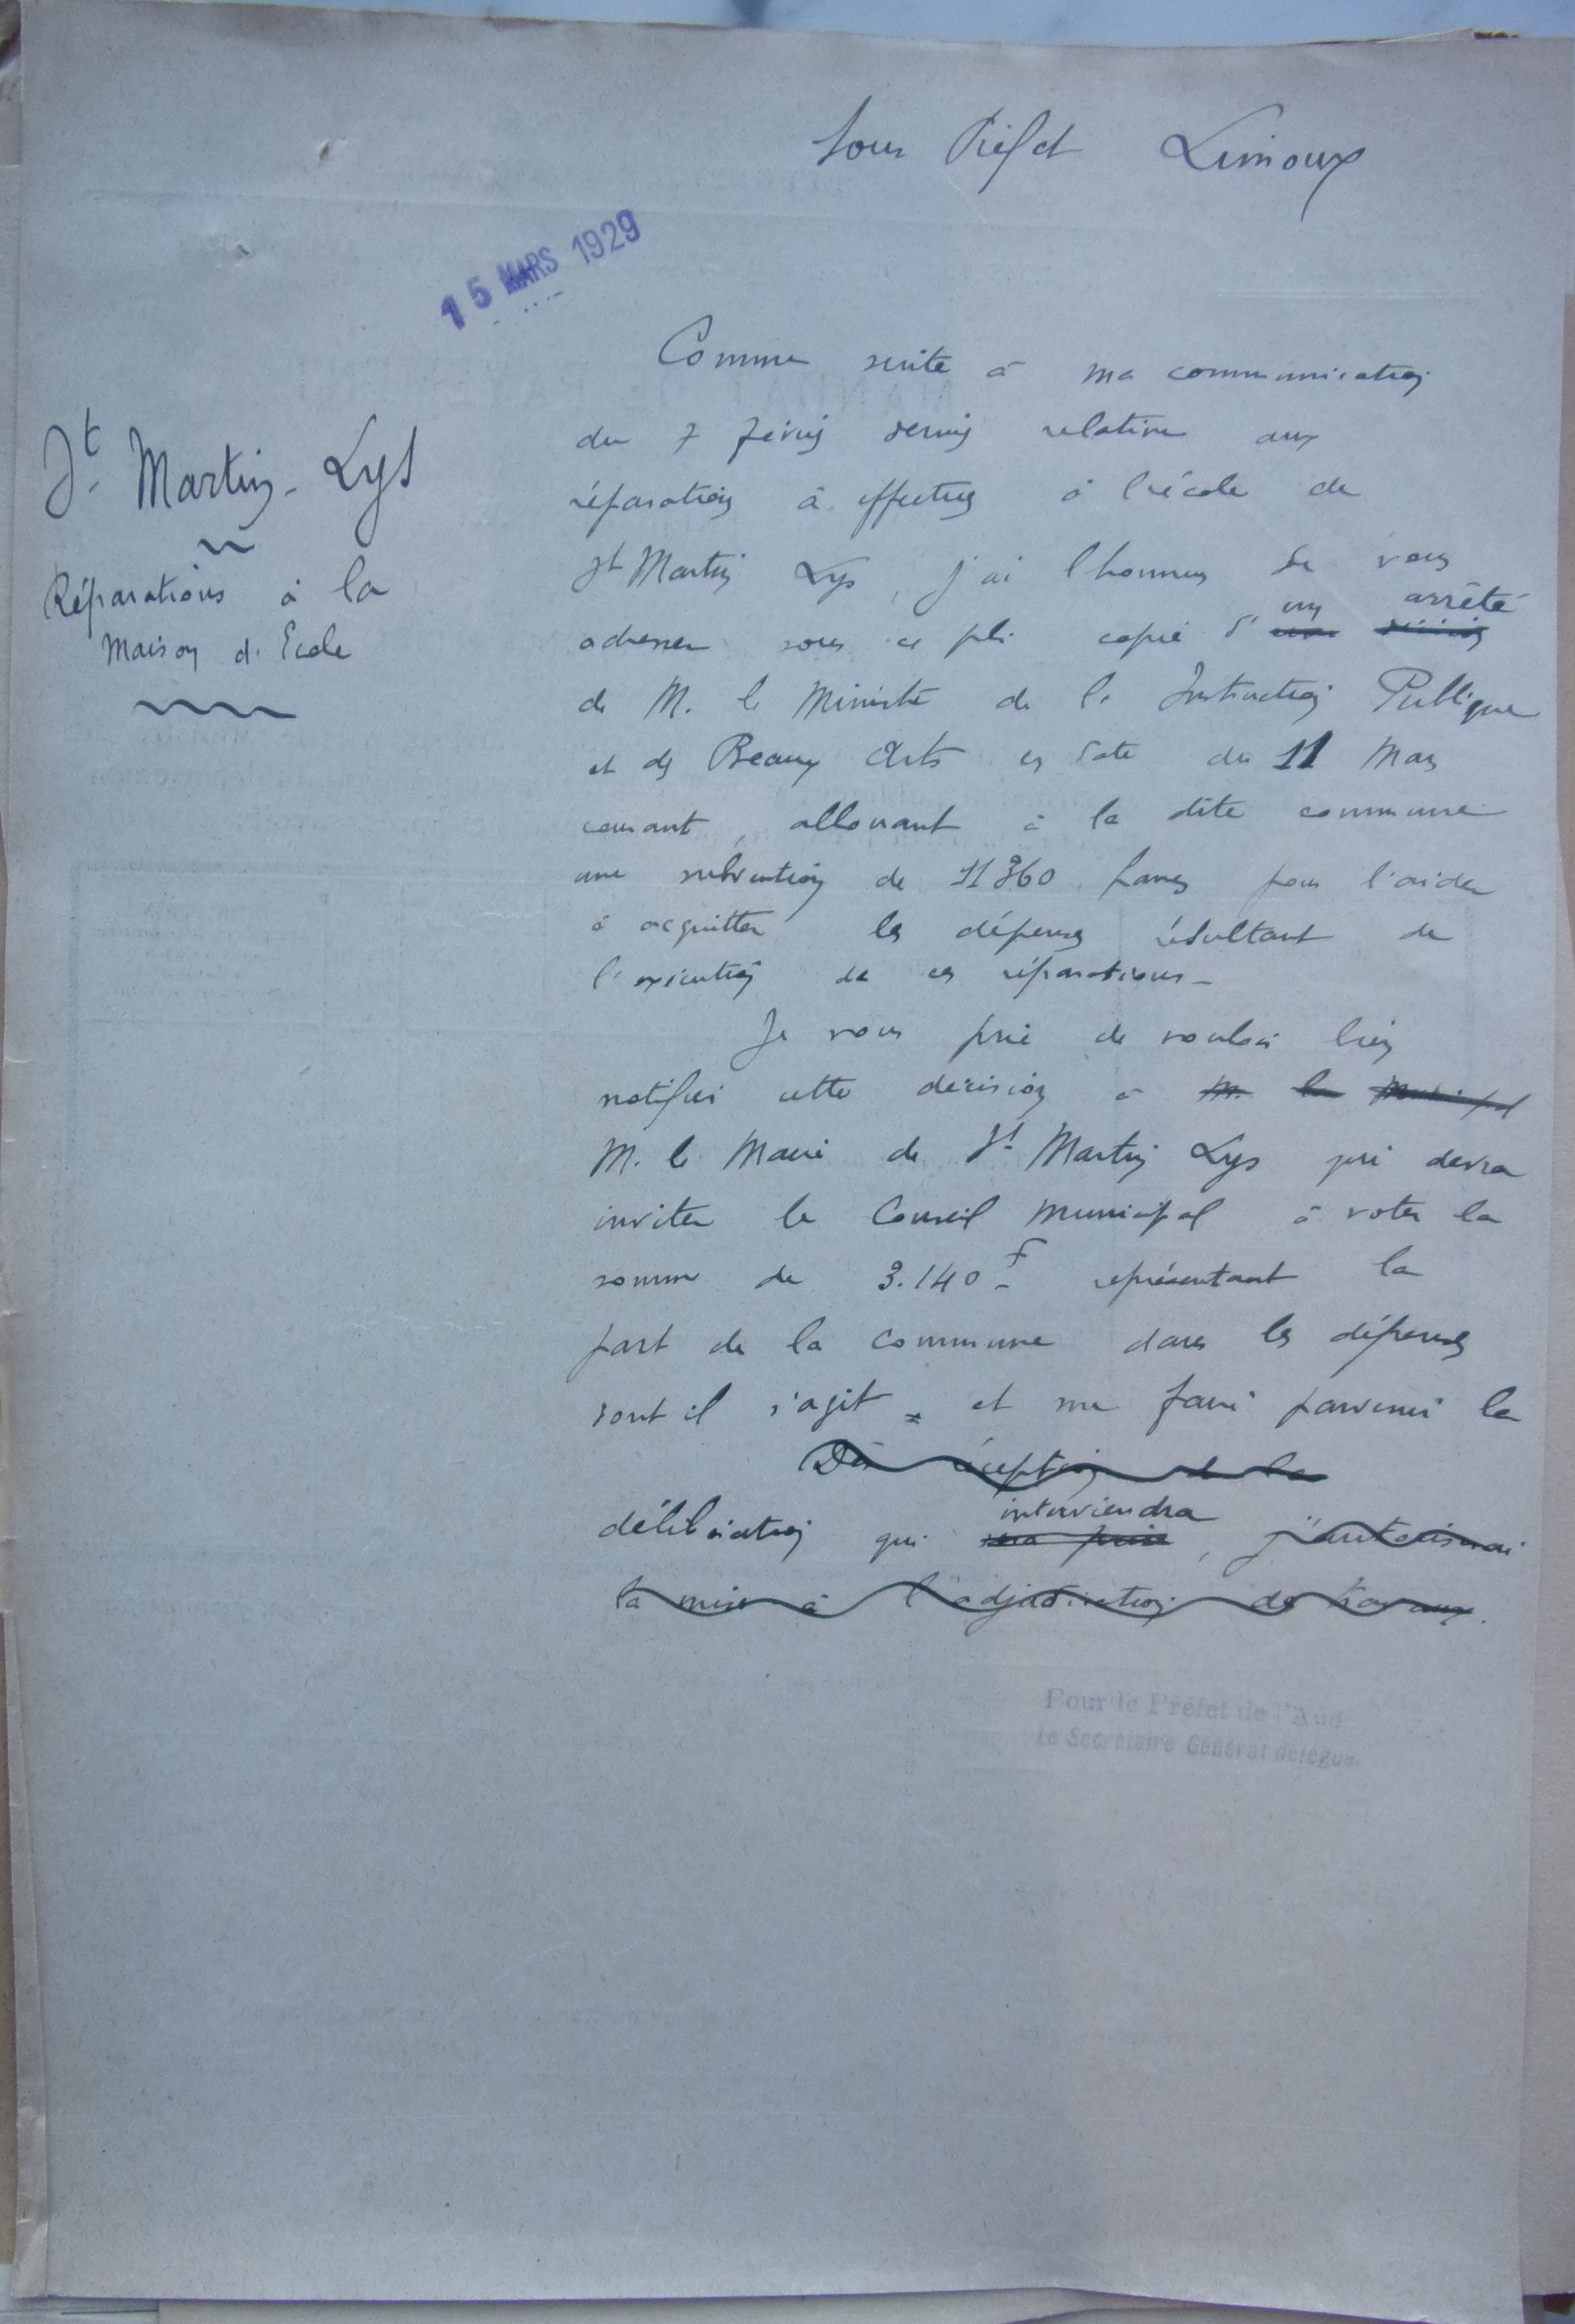 Sous Préfet Limoux
15 MARS 1929
St Martin-Lys
Réparations à la
Maison d'Ecole
Comme suite à ma communication
du 7 février dernier relative aux
réparations à effectuer à l'école de
St Martin Lys, j'ai l'honneur de vous
un arrêté
adresser sous ce pli copie d' une décision
de M. le Ministre de l'Instruction Publique
et des Beaux Arts en date du 11 Mars
courant, allouant à la dite commune
une subvention de 11360 francs pour l'aider
à acquitter les dépenses résultant de
l'exécution de ces réparations -
Je vous prie de vouloir bien
notifier cette décision à M. le Municipal
M. le Maire de St Martin Lys qui devra
inviter le Conseil Municipal à voter la
somme de 3.140 f - représentant la
part de la commune dans les dépenses
dont il s'agit et me faire parvenir la
Dès réception de la
interviendra
délibération qui sera prise, j'autoriserai
la mise à l'adjudication des travaux.
Pour le Préfet de l'Aude
Le Secrétaire Général délégué